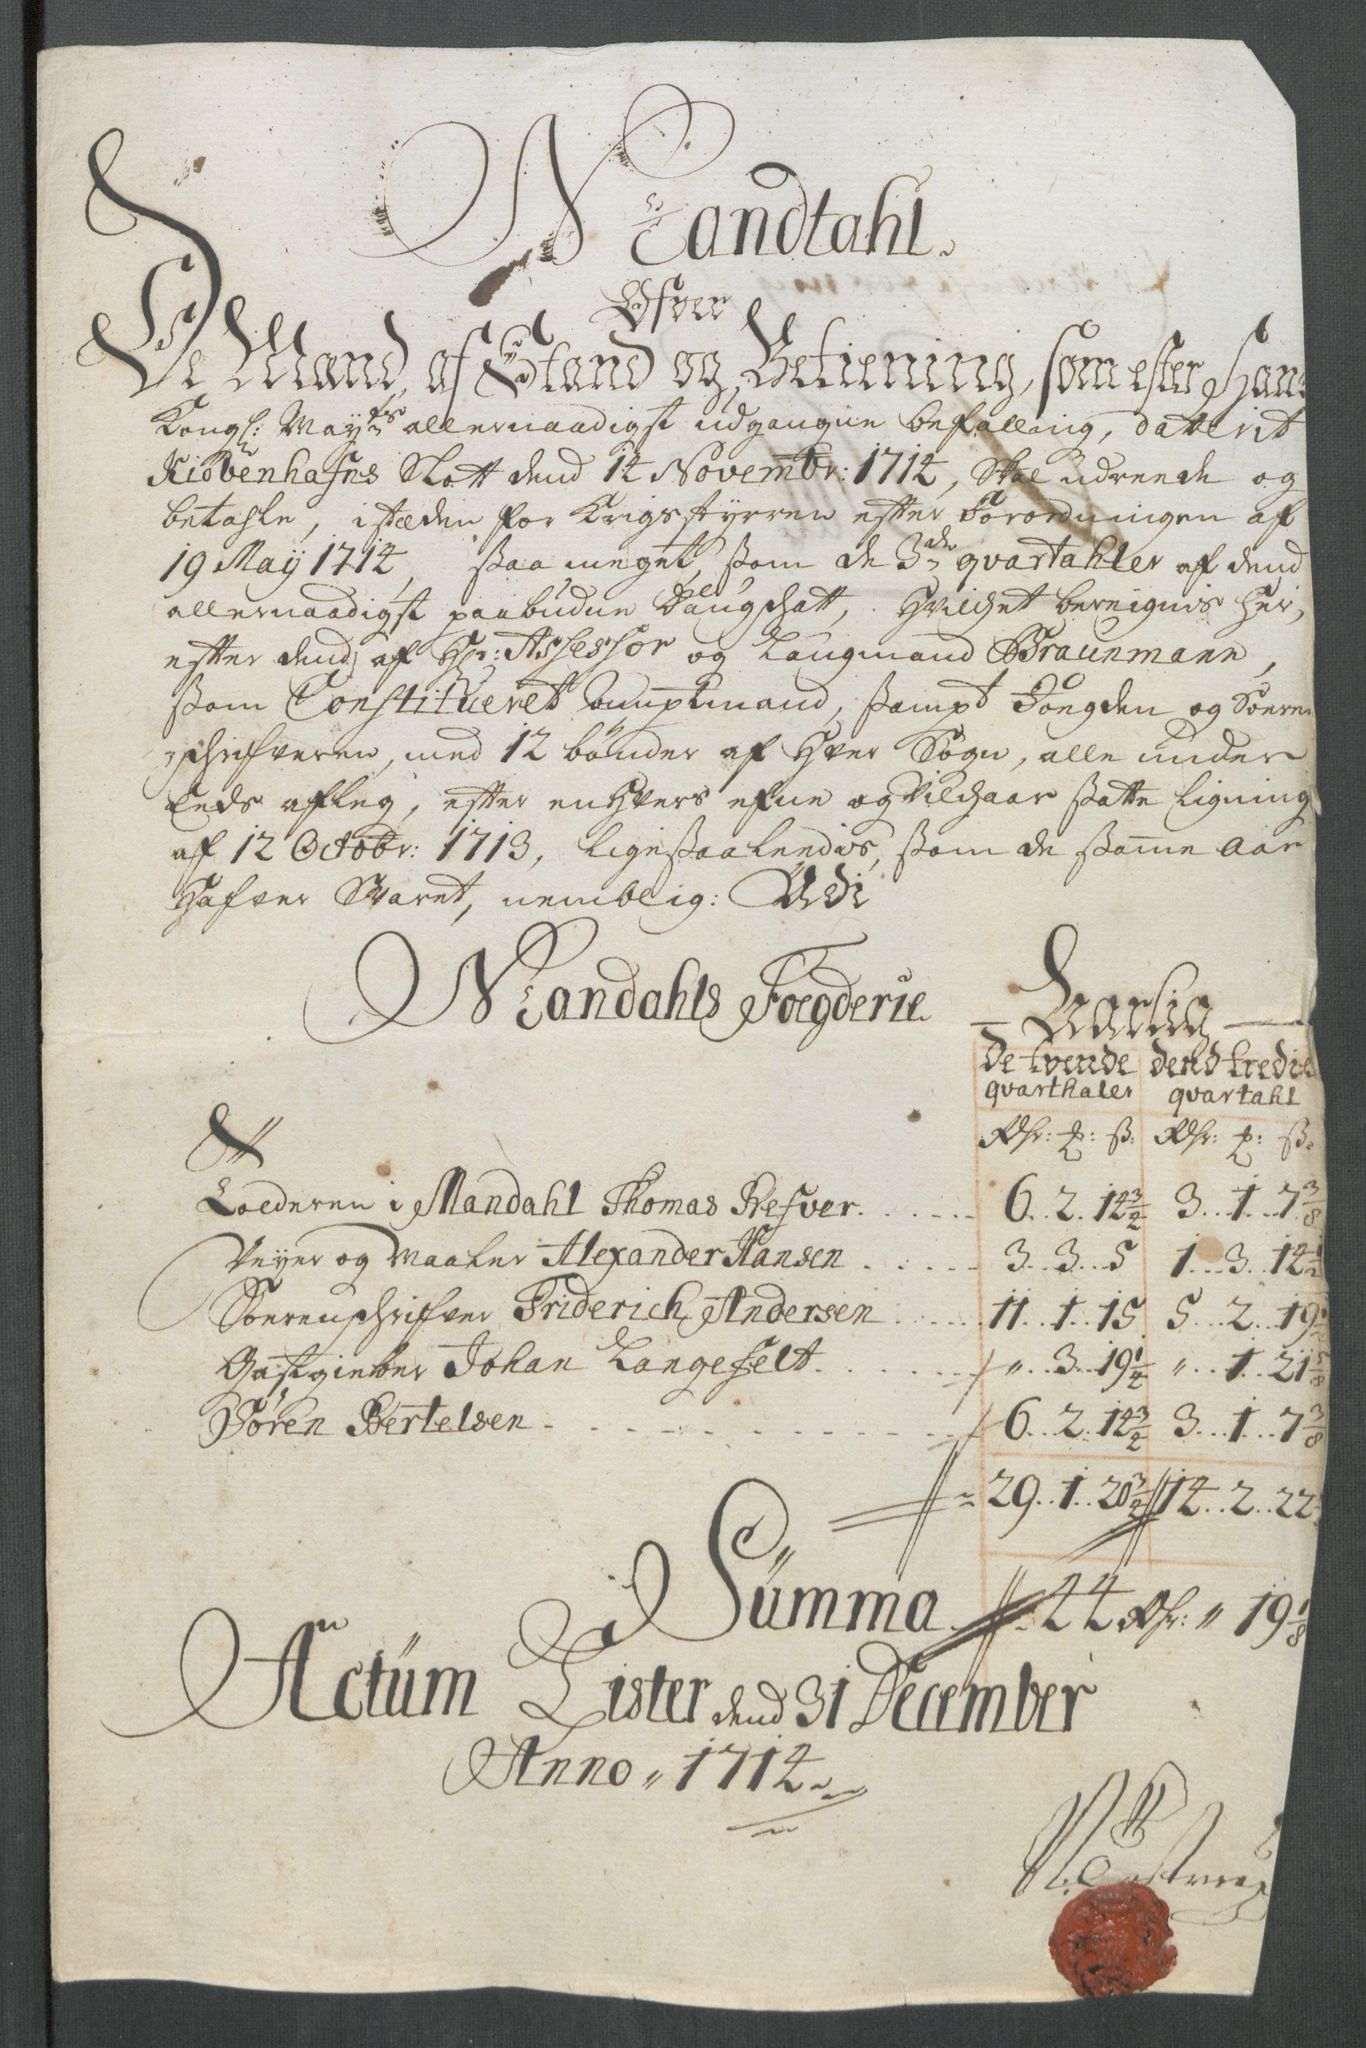 Mandtahl
Ofver
De Mænd, af Stand og Betiening, som efter Hans
Kongl: Mayts allernaadigst udgangne befalling, daterit
Kiøbenhafns Slott dend 14 Novembr: 1714, Skal udreede og
betahle, i stæden for Krigsstyrren efter Forordningen af
19 May 1714, saa meget, som de 3de qvartahler af dend
allernaadigst paabudne Daugschatt, hvilchet bereignis her,
efter dend af Hr: Assessor og Laugmand Braunmann,
som Constitueret Amptmand, sampt Fogden og Soren
schrifveren, med 12 bønder af hver Sogn, alle under
Eeds afleg, efter enhvers efne og Vilchaar satte ligning
af 12 Octobr: 1713, ligesaaleedis, som de samme Aar
hafver Svaret, nemblig: Udi
Mandahls Foegderie
Barsig
De tvende dend tredie
qvarthaler qvartahl
Rdr: ß: Rdr: ß:
Tolderen i Mandahl Thomas Refver. 6. 2. 14 3/4 3. 1. 7 3/8
Veyer og Maaler Alexander Hansen 3. 3. 5 1. 3. 14 1/2
Sorenschrifver Friderich Andersen 11. 1. 15 5. 2. 19 1/2
Gastgieber Johan Langefelt. " 3. 19 1/4 " 1. 21 5/8
Sören Bertelsen 6. 2. 14 3/4 3. 1. 7 3/8
29. 1. 20 3/4 14. 2. 22
Summa 44 Rdr: " 19 1/8
Actüm Lister dend 31 December
Anno " 1714